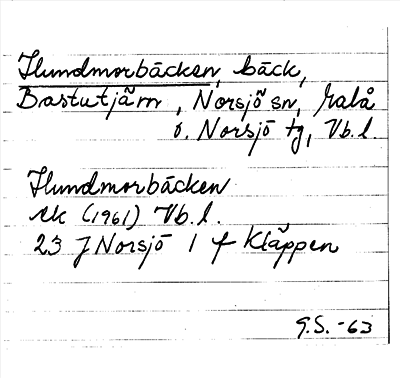 Hundmorbäcken, bäck,
Bastutjärn, Norsjö sn, Malå
o. Norsjö tg, Vb. l.
Hundmorbäcken
ek (1961) Vb. l.
23 J Norsjö 1 f Kläppen
G.S. -63